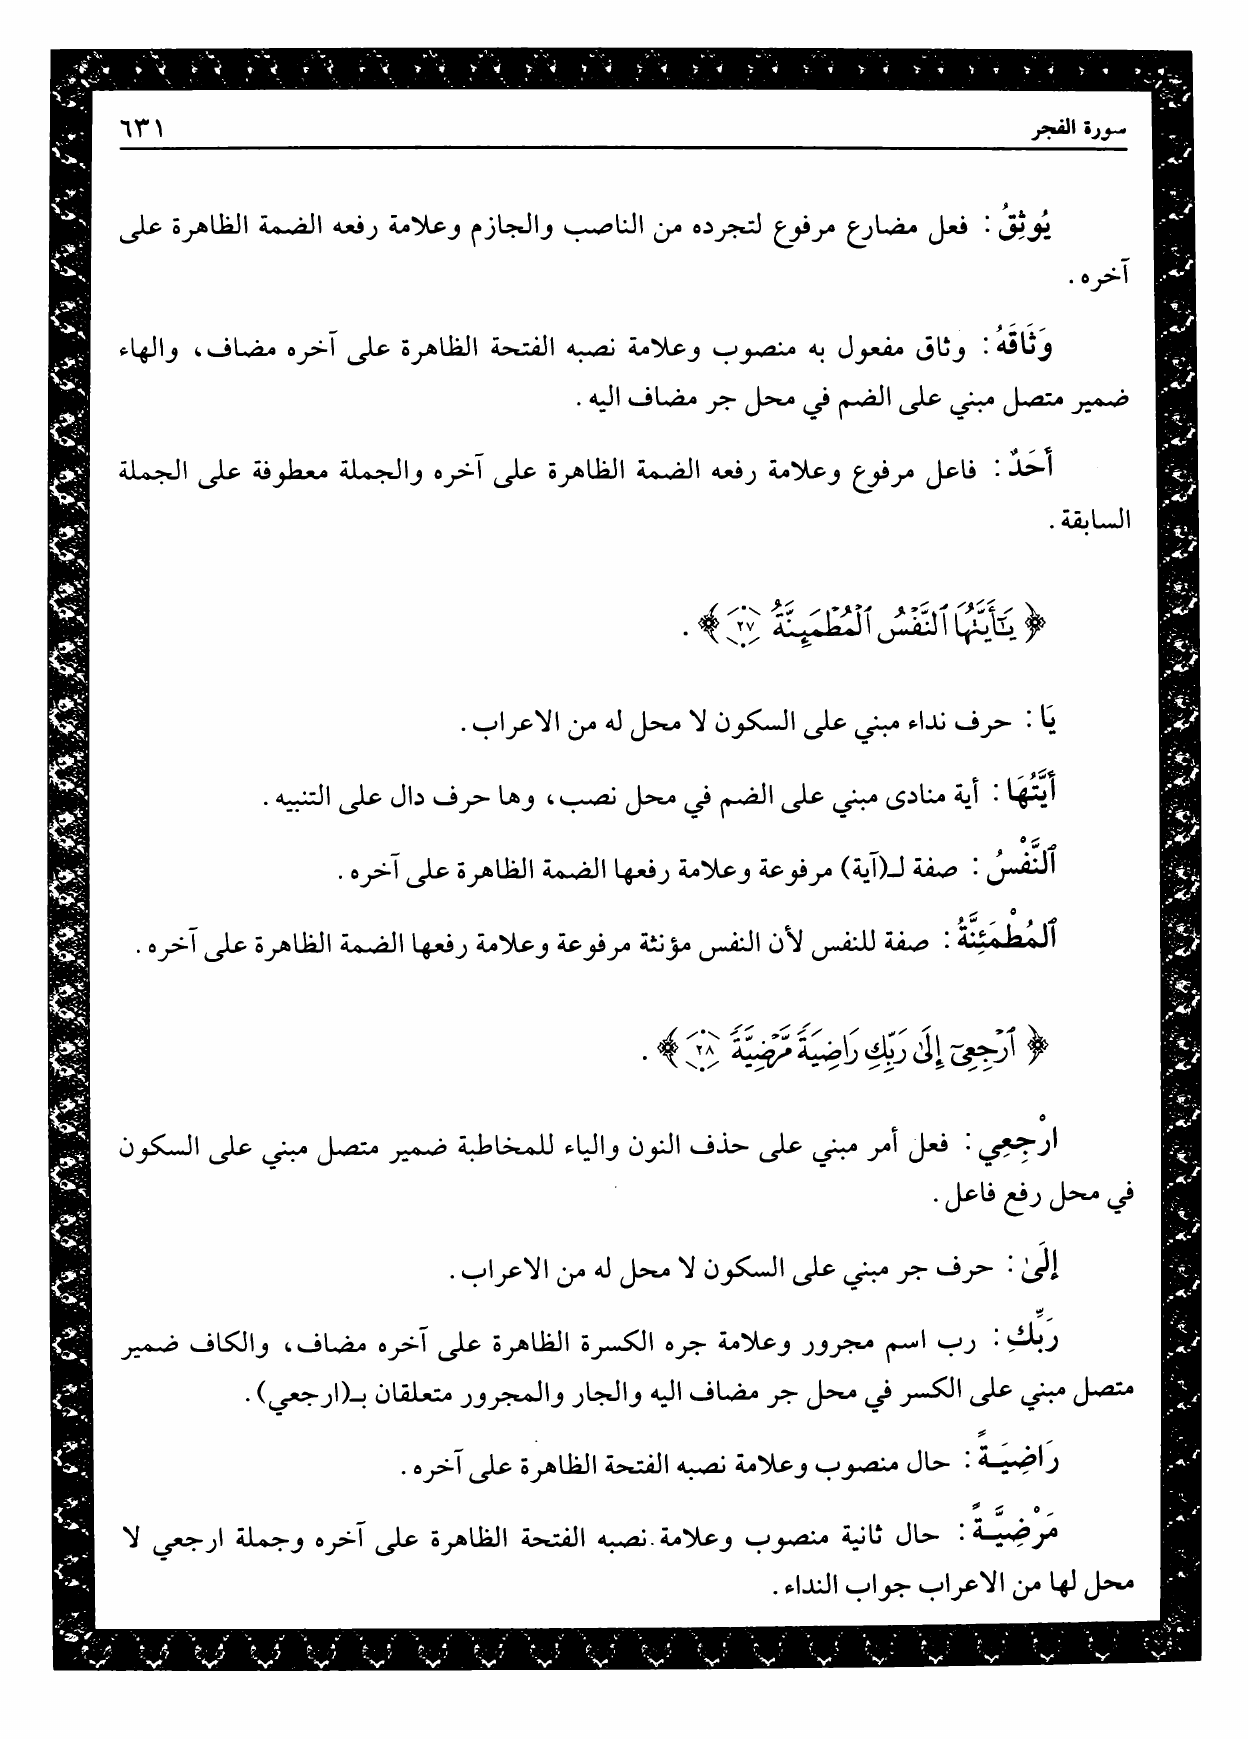 سورة الفجر
٦٣١
يُوثِقُ : فعل مضارع مرفوع لتجرده من الناصب والجازم وعلامة رفعه الضمة الظاهرة على
آخره .
وَثَاقَهُ : وثاق مفعول به منصوب وعلامة نصبه الفتحة الظاهرة على آخره مضاف، والهاء
ضمير متصل مبني على الضم في محل جر مضاف اليه .
أَحَدٌ : فاعل مرفوع وعلامة رفعه الضمة الظاهرة على آخره والجملة معطوفة على الجملة
السابقة .
﴿ يَٰٓأَيَّتُهَا ٱلنَّفْسُ ٱلْمُطْمَئِنَّةُ ٢٧ ﴾ .
يَا : حرف نداء مبني على السكون لا محل له من الاعراب .
أَيَّتُهَا : أية منادى مبني على الضم في محل نصب، وها حرف دال على التنبيه .
ٱلنَّفْسُ : صفة لـ(آية) مرفوعة وعلامة رفعها الضمة الظاهرة على آخره .
ٱلمُطْمَئِنَّةُ : صفة للنفس لأن النفس مؤنثة مرفوعة وعلامة رفعها الضمة الظاهرة على آخره .
﴿ ٱرْجِعِىٓ إِلَىٰ رَبِّكِ رَاضِيَةً مَّرْضِيَّةً ٢٨ ﴾ .
ارْجِعِي : فعل أمر مبني على حذف النون والياء للمخاطبة ضمير متصل مبني على السكون
في محل رفع فاعل .
إلَىٰ : حرف جر مبني على السكون لا محل له من الاعراب .
رَبِّكِ : رب اسم مجرور وعلامة جره الكسرة الظاهرة على آخره مضاف، والكاف ضمير
متصل مبني على الكسر في محل جر مضاف اليه والجار والمجرور متعلقان بـ(ارجعي) .
رَاضِيَـةً : حال منصوب وعلامة نصبه الفتحة الظاهرة على آخره .
مَرْضِيَّـةً : حال ثانية منصوب وعلامة نصبه الفتحة الظاهرة على آخره وجملة ارجعي لا
محل لها من الاعراب جواب النداء .